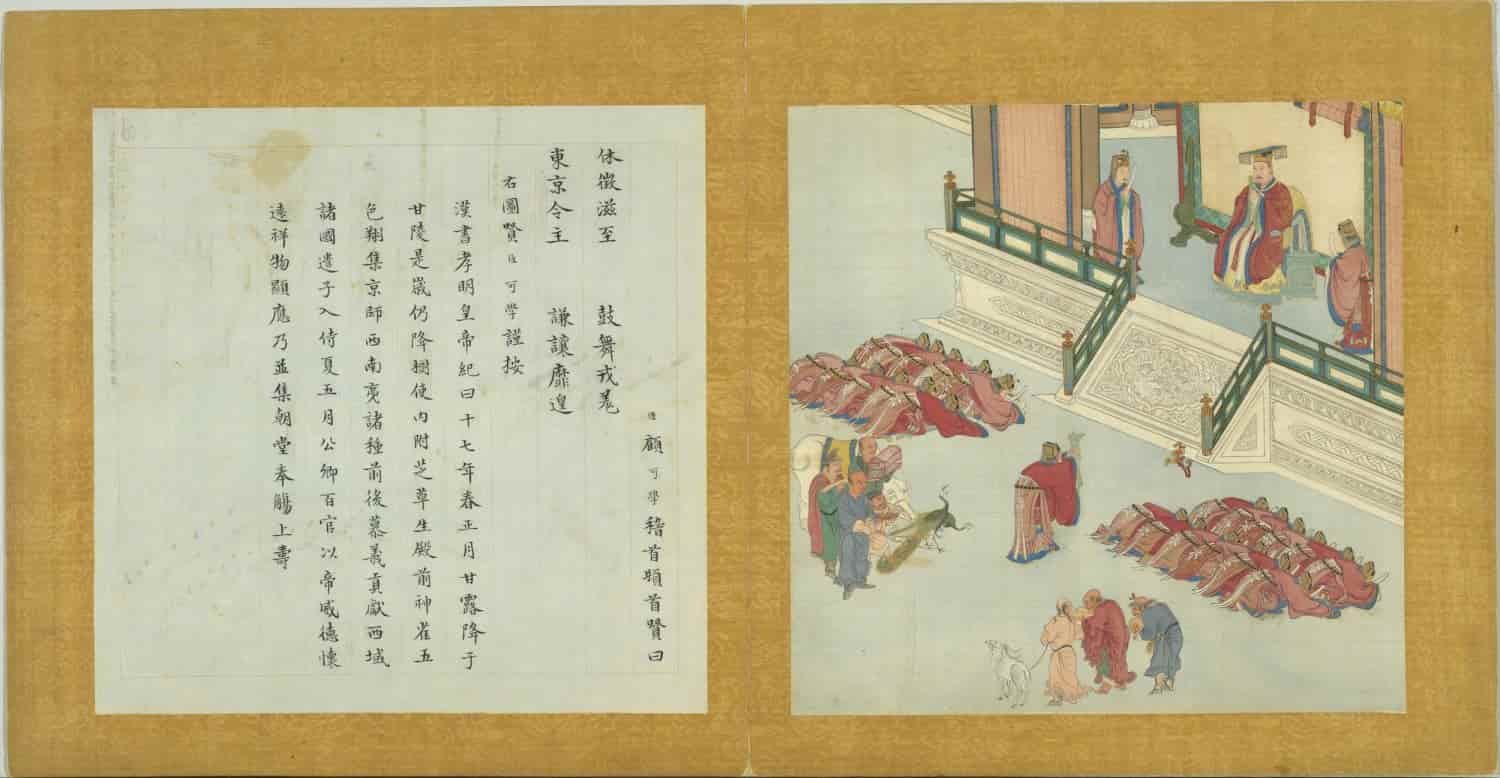 臣顧可學稽首頓首贊曰
休徵滋至 鼓舞戎羌
東京令主 謙讓靡遑
右圖贊臣可學謹按
漢書孝明皇帝紀曰十七年春正月甘露降于
甘陵是歲仍降樹使內附芝草生殿前神雀五
色翔集京師西南夷諸種前後慕義貢獻西域
諸國遣子入侍夏五月公卿百官以帝威德懷
遠祥物顯應乃並集朝堂奉觴上壽